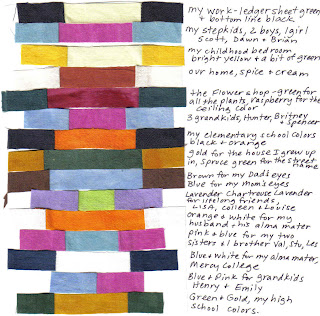 my work-ledger sheet green
+ bottom line black.
my stepkids, 2 boys, 1 girl
Scott, Dawn + Brian
my childhood bedroom
bright yellow + a bit of green
our home, spice + cream
the Flower shop-green for
all the plants, raspberry for the
ceiling color
3 grandkids, Hunter, Britney
+ Spencer
my elementary school colors
black + orange
gold for the house I grew up
in, Spruce green for the street
name
Brown for my Dad's eyes
Blue for my mom's eyes
Lavender Chartreuse Lavender
for lifelong friends,
LISA, Colleen + Louise
orange + white for my
husband + his alma mater
pink + blue for my two
sisters + 1 brother Val, Stu, Les
Blue + white for my alma mater,
Mercy College
Blue + Pink for grandkids
Henry + Emily
Green + Gold, my high
school colors.